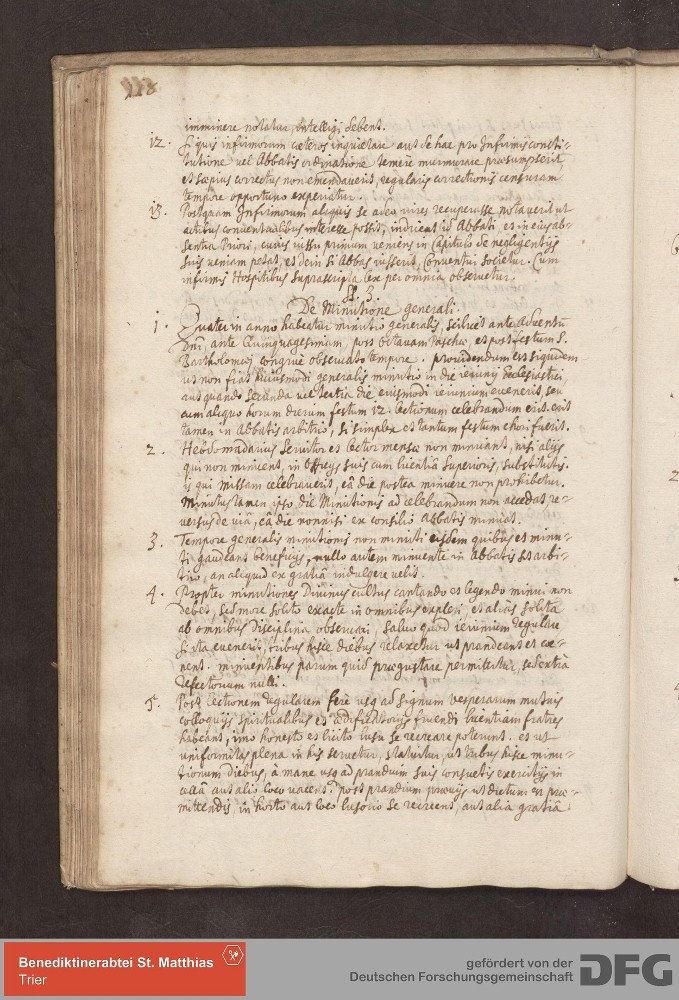 imminere notatur, intelligi debent.
12. Si quis infirmorum cæteros inquietare aut de hac pro Infirmis consti-
tutione vel Abbatis ordinatione temere murmurare præsumpserit
et sæpius correctus non emendaverit, regularis correctionis censuram
tempore opportuno experiatur.
13. Postquam Infirmorum aliquis se adeo vires recuperasse notaverit ut
actibus conventualibus interesse possit, indicet id Abbati et in eius ab-
sentia Priori, cuius iussu primum veniens in Capitulo de negligentiis
suis veniam petat, et dein si Abbas iusserit, Conventui societur. Cum
infirmis Hospitibus suprascripta lex per omnia observetur.
§. 3.
De Minutione generali.
1. Quater in anno habeatur minutio generalis, scilicet ante Adventū
Dn̄i, ante Quinquagesimam, post octavam Paschæ, et post festum S.
Bartholomæi congrue observato tempore. providendum est siquidem
ut non fiat huiusmodi generalis minutio in die ieiunij Ecclesiastici,
aut quando secunda vel tertia die eiusmodi ieiunium evenerit, seu
cum aliquo horum dierum festum 12. lectionum celebrandum erit. erit
tamen in Abbatis arbitrio, si simplex et tantum festum chori fuerit.
2. Hebdomadarius Servitor et lector mensæ non minuant, nisi alijs
qui non minuent, in officijs suis cum licentiâ superioris, substitutis.
is qui missam celebraverit, eâ die postea minuere non prohibetur.
Minutus tamen ipso die Minutionis ad celebrandum non accedat re-
versus de viâ, eâ die nonnisi ex consilio Abbatis minuat.
3. Tempore generalis minutionis non minuti eisdem quibus et minu-
ti gaudeant beneficijs, nullo autem minuente in Abbatis sit arbi-
trio, an aliquid ex gratiâ indulgere velit.
4. Propter minutiones Divinus cultus cantando et legendo minui non
debet, sed more solito exacte in omnibus expleri et alias solita
ab omnibus disciplina observari, salvo quod ieiunium regulare
si ita evenerit, tribus hisce diebus relaxetur ut prandeant et cœ-
nent. minuentibus parum quid prægustare permittetur, sed extrâ
refectorium nulli.
5. Post lectionem regularem fere usq ad signum vesperarum mutuis
colloquijs spiritualibus et ædificatorijs fruendi licentiam fratres
habeant, imo honesto et licito lusu se recreare poterunt. et ut
uniformitas plena in his servetur, statuitur, ut tribus hisce minu-
tionum diebus, à mane usq ad prandium suis consuetis exercitijs in
cellâ aut alio loco vacent. post prandium prævijs ut dictum est præ-
mittendis, in horto aut loco lusorio se recreent, aut alia gratiâ
Benediktinerabtei St. Matthias
Trier
gefördert von der
Deutschen Forschungsgemeinschaft
DFG